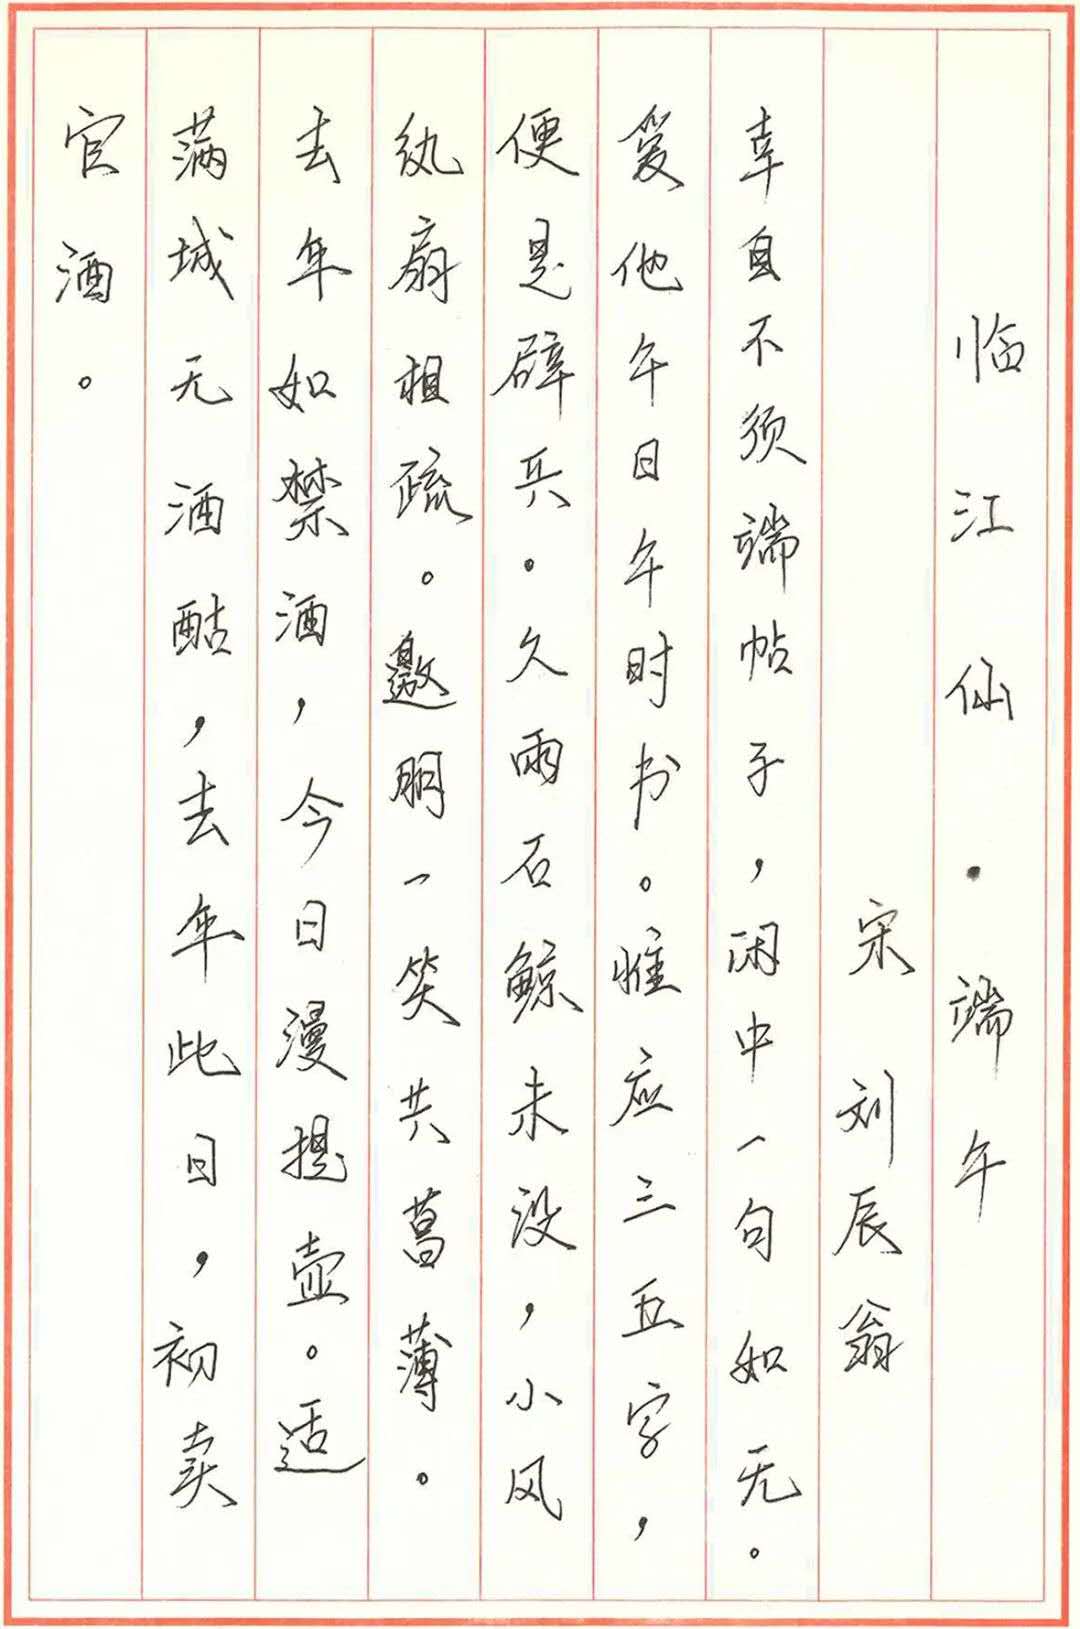 临江仙·端午
宋 刘辰翁
幸自不须端帖子，闲中一句如无。
爱他午日午时书。惟应三五字，
便是辟兵。久雨石鲸未没，小风
纨扇相疏。邀朋一笑共菖薄。
去年如禁酒，今日漫提壶。适
满城无酒酤，去年此日，初卖
官酒。